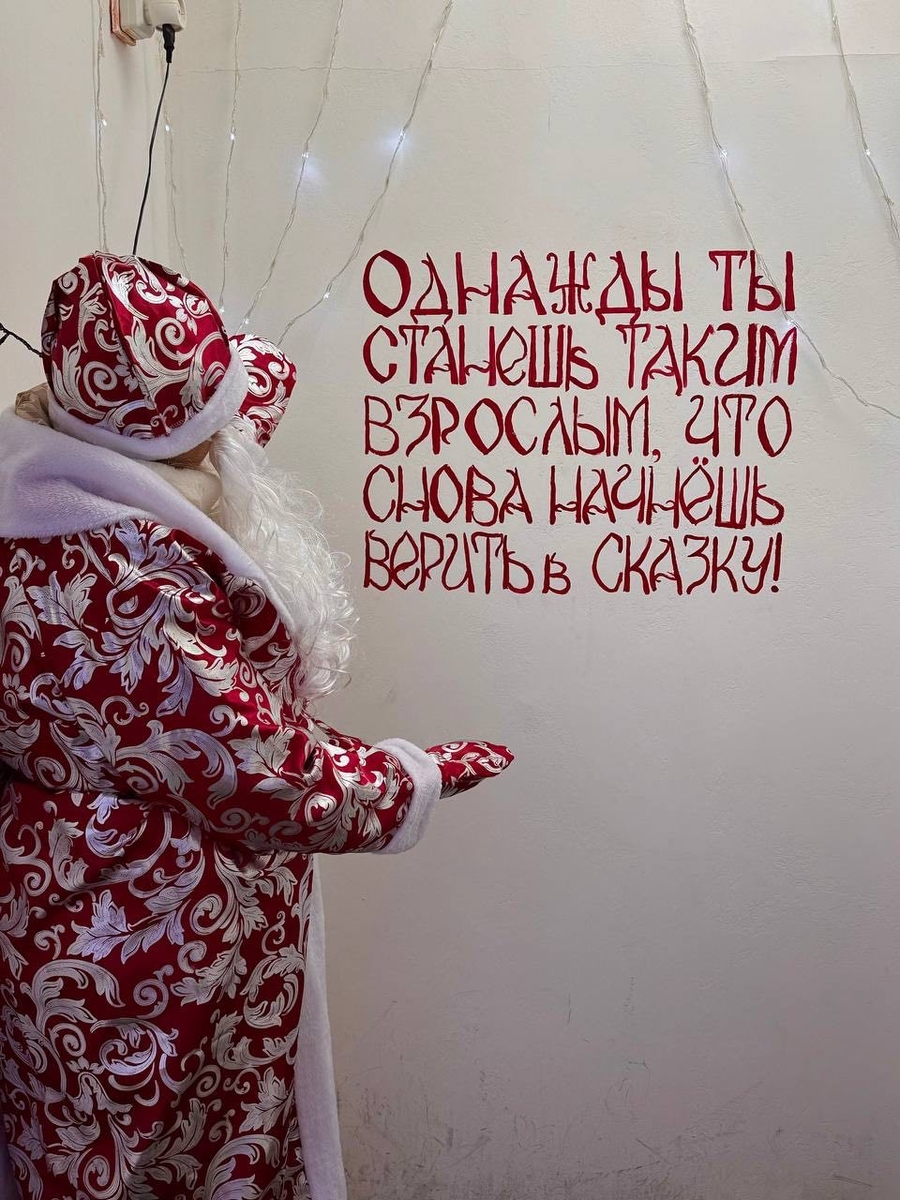 Однажды ты
станешь таким
взрослым, что
снова начнёшь
верить в сказку!